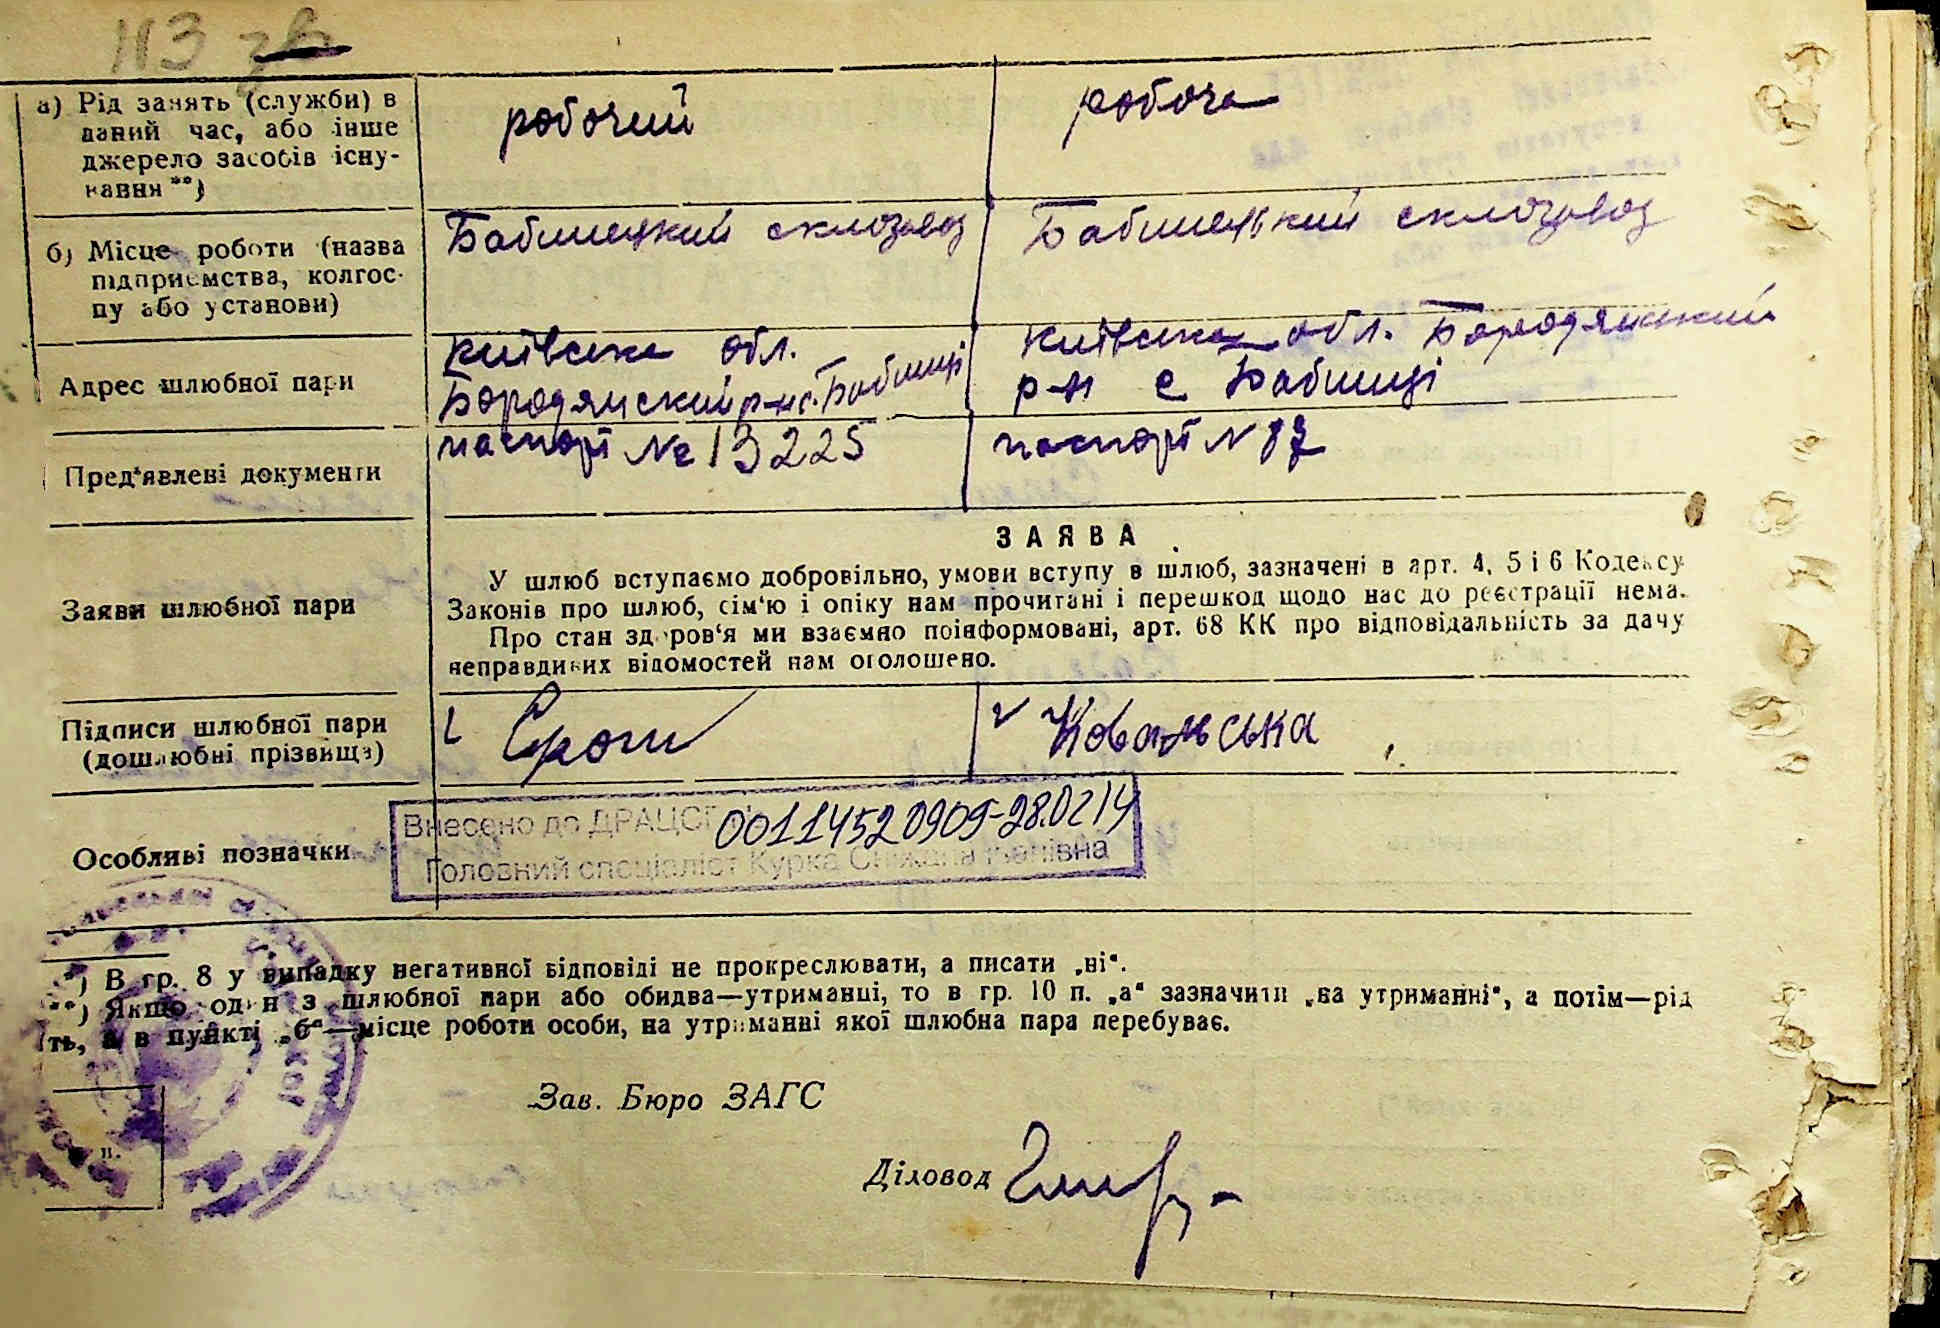 нз зв
а) Рід занять (служби) в даний час, або інше джерело засобів існування **)
робочий
робоча
б) Місце роботи (назва підприємства, колгоспу або установи)
Бабинецкий склозавод
Бабинецький склозавод
Адрес шлюбної пари
Київська обл.
Бородянский р-н с. Бабинці
Київська обл. Бородянський
р-н с Бабинці
Пред'явлені документи
паспорт № 13225
паспорт N 87
ЗАЯВА
Заяви шлюбної пари
У шлюб вступаємо добровільно, умови вступу в шлюб, зазначені в арт. 4, 5 і 6 Кодексу
Законів про шлюб, сім'ю і опіку нам прочитані і перешкод щодо нас до реєстрації нема.
Про стан здоров'я ми взаємно поінформовані, арт. 68 КК про відповідальність за дачу
неправдивих відомостей нам оголошено.
Підписи шлюбної пари
(дошлюбні прізвища)
Ковальська
Особливі позначки
Внесено до ДРАЦСГ 00114520909-28.0214
Головний спеціаліст Курка Сніжана
*) В гр. 8 у випадку негативної відповіді не прокреслювати, а писати „ні“.
**) Якщо один з шлюбної пари або обидва—утриманці, то в гр. 10 п. „а“ зазначити „на утриманні“, а потім—рід
ть, а в пункті „б“—місце роботи особи, на утриманні якої шлюбна пара перебуває.
Зав. Бюро ЗАГС
п.
Діловод